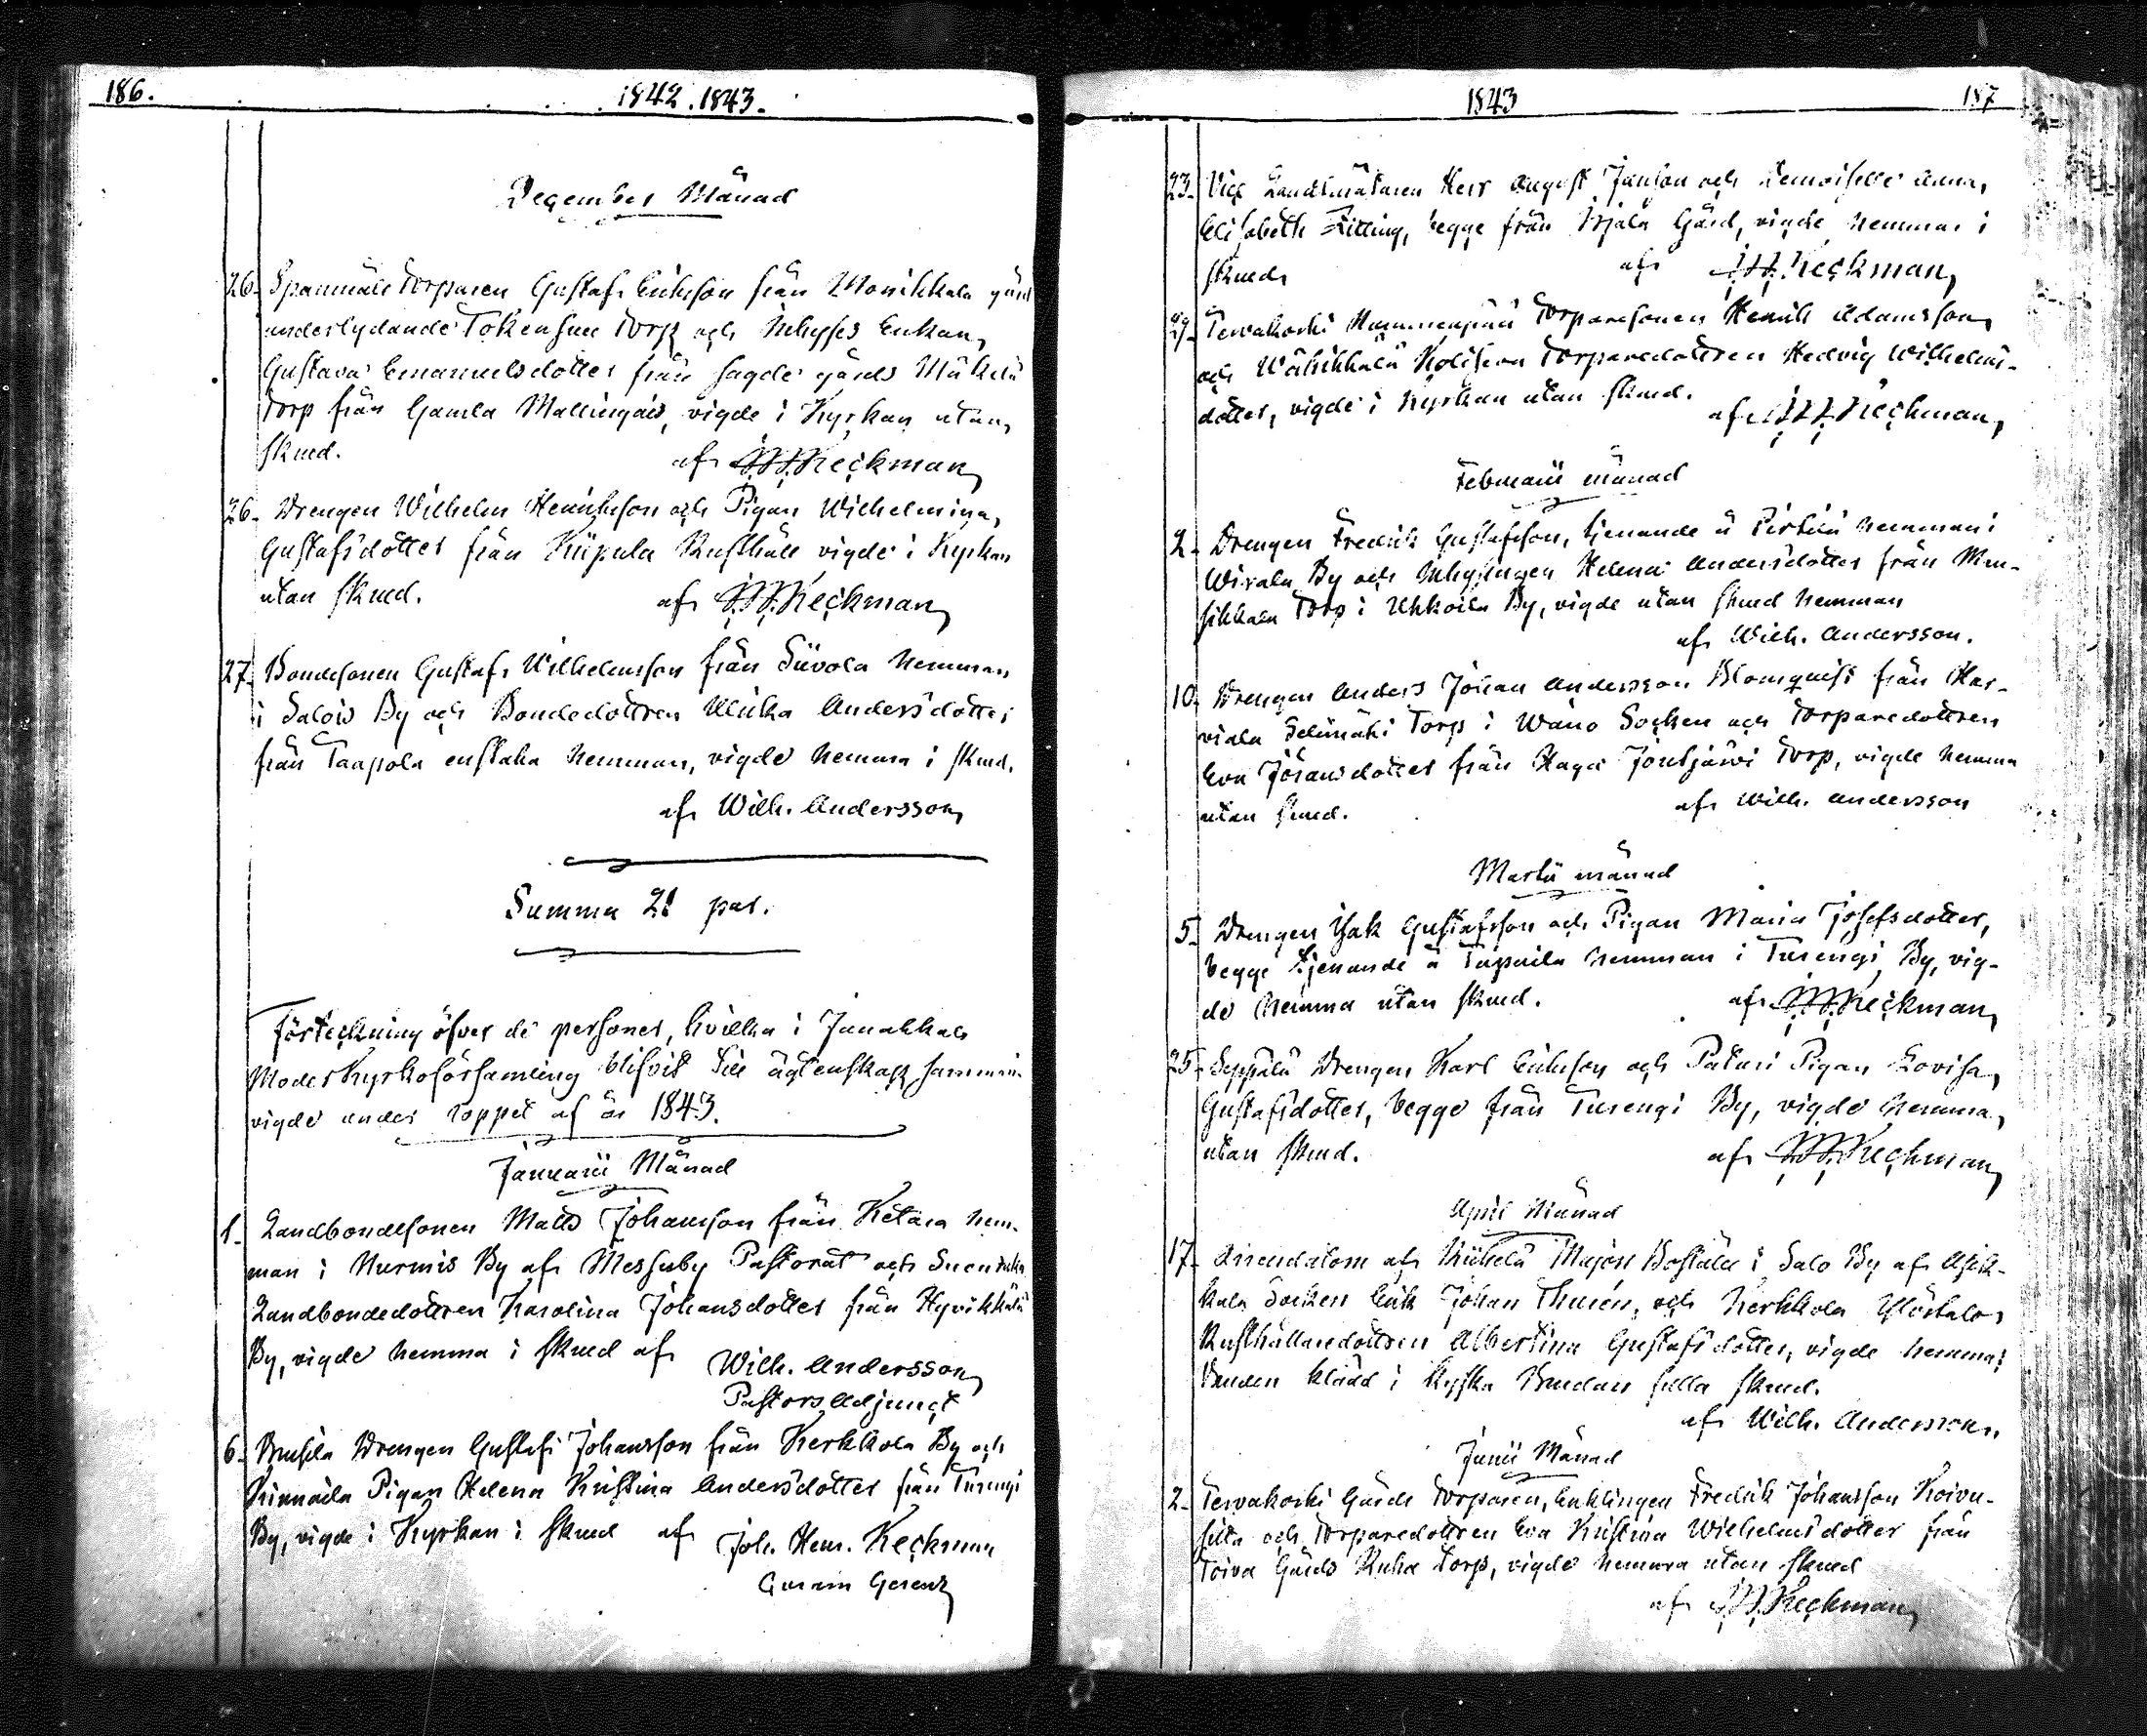 186.
1842. 1843.
December Månad
26. Spannmåls Torparen Gustaf Eriksson från Monikkala gård
underlydande Torp och Inhyses Enkan,
Gustava Emanuelsdotter från sagde gårds Mäkelä
Torp från Gamla Mallingais, vigde i Kyrkan utan
skrud. af J.H. Keckman
26. Drengen Wilhelm Henriksson och Pigan Wilhelmina,
Gustafsdotter från Kiipula Rusthåll vigde i Kyrkan
utan skrud. af J.H. Keckman
27. Bondesonen Gustaf Wilhelmsson från Siivola hemman
i Salois By och Bondedottren Ulrika Andersdotter
från Taapola enstaka hemman, vigde hemma i skrud.
af Wilh. Andersson
Summa 21 par.
Förteckning öfver de personer, hvilka i Janakkala
Moder Kyrkoförsamling blifvit till ägtenskap samman
vigde under loppet af år 1843.
Januarii Månad
1. Landbondesonen Matts Johansson från Ketara hem-
man i Nurmis By af Messuby Pastorat och
Landbondedottren Karolina Johansdotter från Hyvikkälä
By, vigde hemma i skrud af Wilh. Andersson
Pastors Adjunct
6. Drengen Gustaf Johansson från Kerkkola By och
Pigan Helena Kristina Andersdotter från Turengi
By, vigde i Kyrkan i skrud af Joh. Henr. Keckman
1843
187
23. Vice Landtmätaren Herr August Janson och Demoiselle Anna,
Elisabeth Zitting, begge från Irjala Gård, vigde hemma i
skrud, af J.H. Keckman
29. Tervakoski Torparesonen Henrik Adamsson
och Wähikkälä Torparedottren Hedvig Wilhelms-
dotter, vigde i Kyrkan utan skrud. af J.H. Keckman
Februarii månad
2. Drengen Fredrik Gustafsson, tjenande å Pirttilä hemman i
Wirala By och Inhysingen Helena Andersdotter från Man-
sikkala Torp i Uhkoila By, vigde utan skrud hemman
af Wilh. Andersson.
10. Drengen Anders Johan Andersson Blomquist från Har-
viala Selinäki Torp i Wåno Socken och Torparedottren
Eva Johansdotter från Haga Torp, vigde hemma
utan skrud. af Wilh. Andersson
Martii månad
5. Drengen Isak Gustafsson och Pigan Maria Josefsdotter,
begge tjenande å hemman i Turengi By, vig-
de hemma utan skrud. af J.H. Keckman
25. Seppälä Drengen Karl Eriksson och Patari Pigan Lovisa,
Gustafsdotter, begge från Turengi By, vigde hemma,
utan skrud. af J.H. Keckman
April Månad
17. Arrendatorn af Majors Boställe i Salo By af Asik-
kala Socken Erik Johan Thurén, och Kerkkola
Rusthållaredottren Albertina Gustafsdotter, vigde hemma,
Bruden klädd i Ryska Brudars fulla skrud.
af Wilh. Andersson.
Junii Månad
2. Tervakoski Gårds Torparen, Enklingen Fredrik Johansson Koivu-
silta och Torparedottren Eva Kristina Wilhelmsdotter från
Toiva Gårds Ruha Torp, vigde hemma utan skrud
af J.H. Keckman